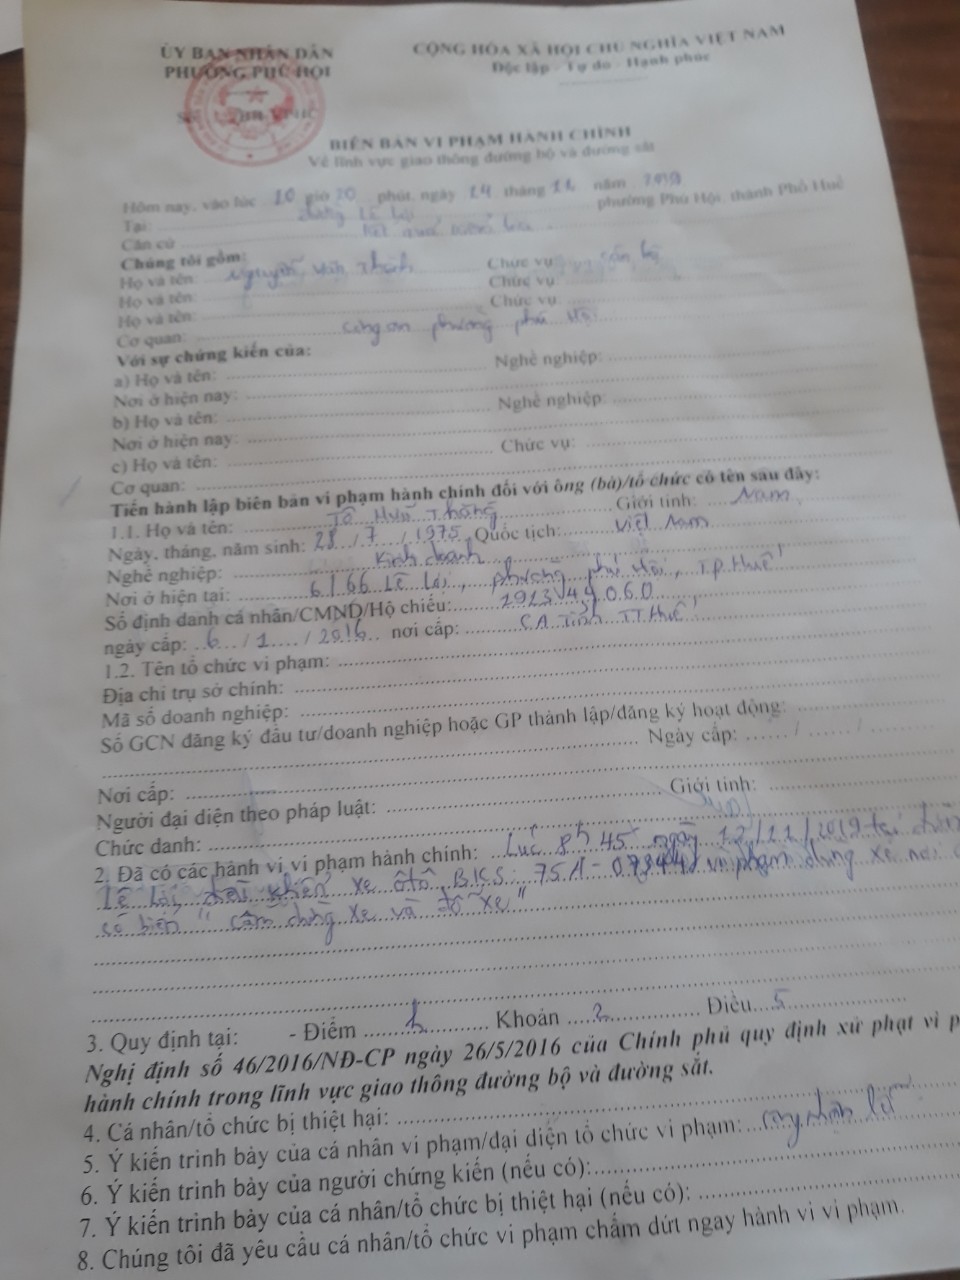 ỦY BAN NHÂN DÂN
PHƯỜNG PHÚ HỘI
CỘNG HÒA XÃ HỘI CHỦ NGHĨA VIỆT NAM
Độc lập - Tự do - Hạnh phúc
BIÊN BẢN VI PHẠM HÀNH CHÍNH
Về lĩnh vực giao thông đường bộ và đường sắt
Hôm nay, vào lúc 10 giờ 20 phút, ngày 14 tháng 11 năm 2019
Tại: đường Lê Lợi phường Phú Hội, thành Phố Huế
Căn cứ kết quả kiểm tra
Chúng tôi gồm:
Họ và tên: Nguyễn Văn Thành Chức vụ: cán bộ
Họ và tên: Chức vụ:
Họ và tên: Chức vụ:
Cơ quan: công an phường phú Hội
Với sự chứng kiến của:
a) Họ và tên: Nghề nghiệp:
Nơi ở hiện nay:
b) Họ và tên: Nghề nghiệp:
Nơi ở hiện nay:
c) Họ và tên: Chức vụ:
Cơ quan:
Tiến hành lập biên bản vi phạm hành chính đối với ông (bà)/tổ chức có tên sau đây:
1.1. Họ và tên: Tô Hữu Thăng Giới tính: Nam
Ngày, tháng, năm sinh: 28/7/1975 Quốc tịch: Việt Nam
Nghề nghiệp: kinh doanh
Nơi ở hiện tại: 6/66 Lê Lợi, phường phú Hội, TP Huế
Số định danh cá nhân/CMND/Hộ chiếu: 191344060
ngày cấp: 6/1/2016 nơi cấp: CA Tỉnh TT Huế
1.2. Tên tổ chức vi phạm:
Địa chỉ trụ sở chính:
Mã số doanh nghiệp:
Số GCN đăng ký đầu tư/doanh nghiệp hoặc GP thành lập/đăng ký hoạt động:
Ngày cấp: / /
Nơi cấp:
Người đại diện theo pháp luật: Giới tính:
Chức danh:
2. Đã có các hành vi vi phạm hành chính: Lúc 8h 45' ngày 12/11/2019 tại
Lê Lợi, điều khiển xe ôtô BKS: 75A - vi phạm dừng xe nơi
có biển "cấm dừng xe và đỗ xe"
3. Quy định tại: - Điểm Khoản 2 Điều 5
Nghị định số 46/2016/NĐ-CP ngày 26/5/2016 của Chính phủ quy định xử phạt vi
hành chính trong lĩnh vực giao thông đường bộ và đường sắt.
4. Cá nhân/tổ chức bị thiệt hại:
5. Ý kiến trình bày của cá nhân vi phạm/đại diện tổ chức vi phạm: công nhận lỗi
6. Ý kiến trình bày của người chứng kiến (nếu có):
7. Ý kiến trình bày của cá nhân/tổ chức bị thiệt hại (nếu có):
8. Chúng tôi đã yêu cầu cá nhân/tổ chức vi phạm chấm dứt ngay hành vi vi phạm.